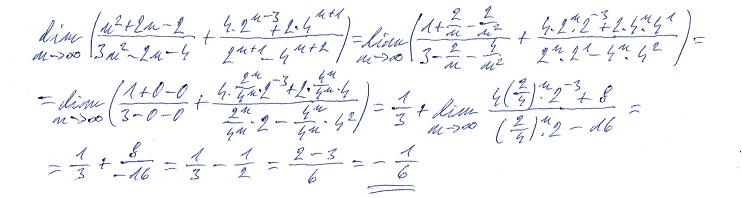 lim n→∞ ( (n² + 2n − 2)/(3n² − 2n − 4) + (4·2ⁿ⁻³ + 2·4ⁿ⁺¹)/(2ⁿ⁺¹ − 4ⁿ⁺²) ) = lim n→∞ ( (1 + 2/n − 2/n²)/(3 − 2/n − 4/n²) + (4·2ⁿ·2⁻³ + 2·4ⁿ·4¹)/(2ⁿ·2¹ − 4ⁿ·4²) ) =
= lim n→∞ ( (1+0−0)/(3−0−0) + (4·2ⁿ/4ⁿ·2⁻³ + 2·4ⁿ/4ⁿ·4)/(2ⁿ/4ⁿ·2 − 4ⁿ/4ⁿ·4²) ) = 1/3 + lim n→∞ (4(2/4)ⁿ·2⁻³ + 8)/((2/4)ⁿ·2 − 16) =
= 1/3 + 8/−16 = 1/3 − 1/2 = (2−3)/6 = − 1/6